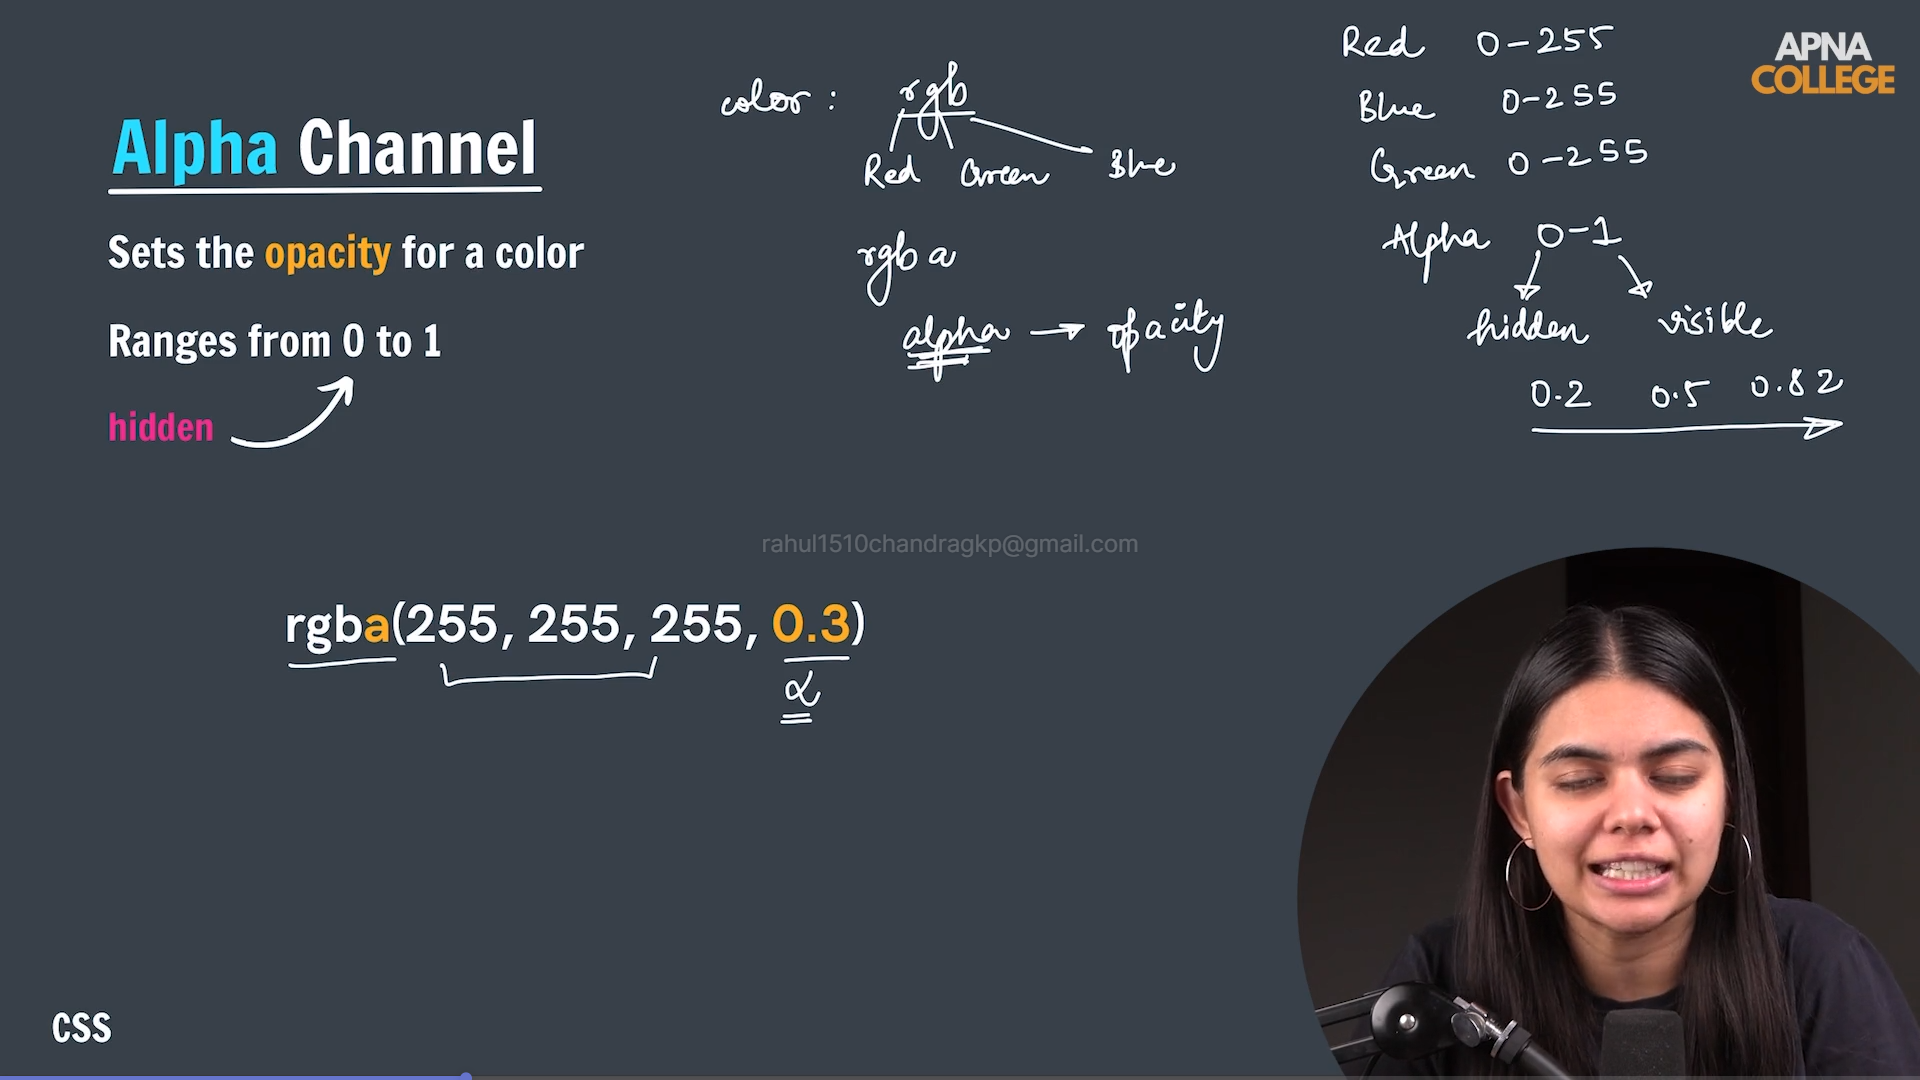 Alpha Channel
Sets the opacity for a color
Ranges from 0 to 1
hidden
color : rgb
Red Green Blue
rgba
alpha → opacity
Red 0-255
Blue 0-255
Green 0-255
Alpha 0-1
hidden visible
0.2 0.5 0.82
APNA
COLLEGE
rahul1510chandragkp@gmail.com
rgba(255, 255, 255, 0.3)
α
CSS